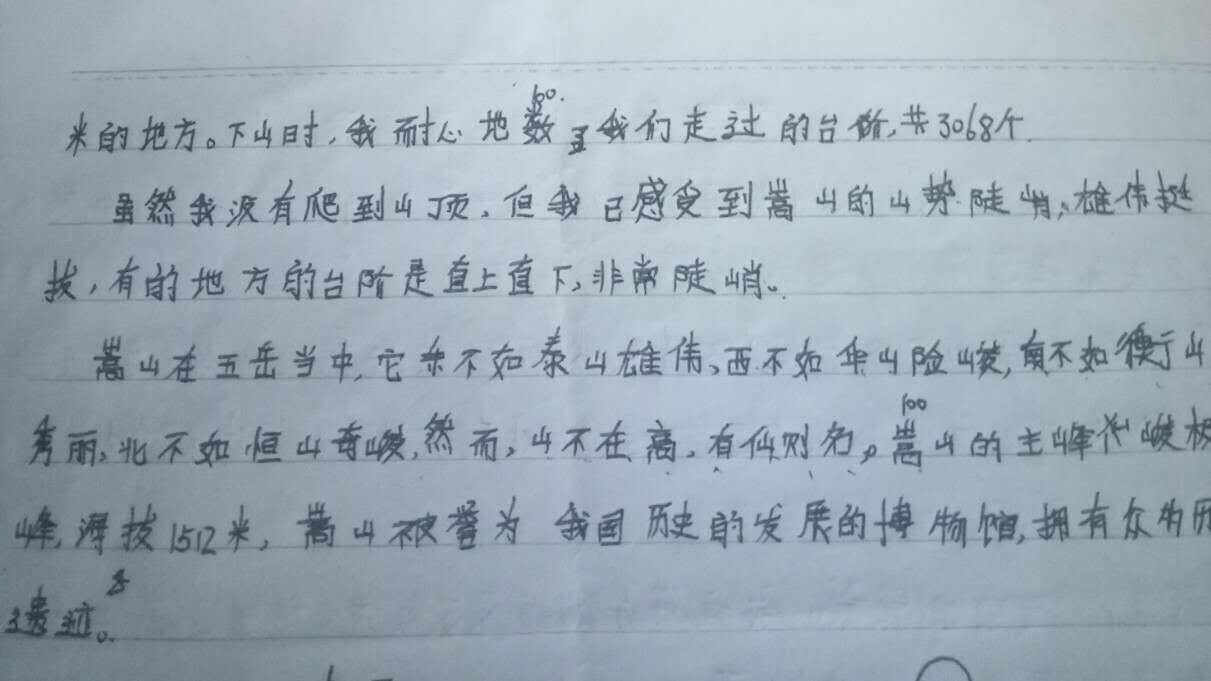 100.
米的地方。下山时,我耐心地数了我们走过的台阶,共3068个.
虽然我没有爬到山顶,但我已感受到嵩山的山势陡峭、雄伟挺
拔,有的地方的台阶是直上直下,非常陡峭。
嵩山在五岳当中,它东不如泰山雄伟、西不如华山险峻,南不如衡山
秀丽,北不如恒山奇峻,然而,山不在高,有仙则名,嵩山的主峰 峻极
100
峰,海拔1512米,嵩山被誉为 我国历史的发展的博物馆,拥有众为历
遗迹。